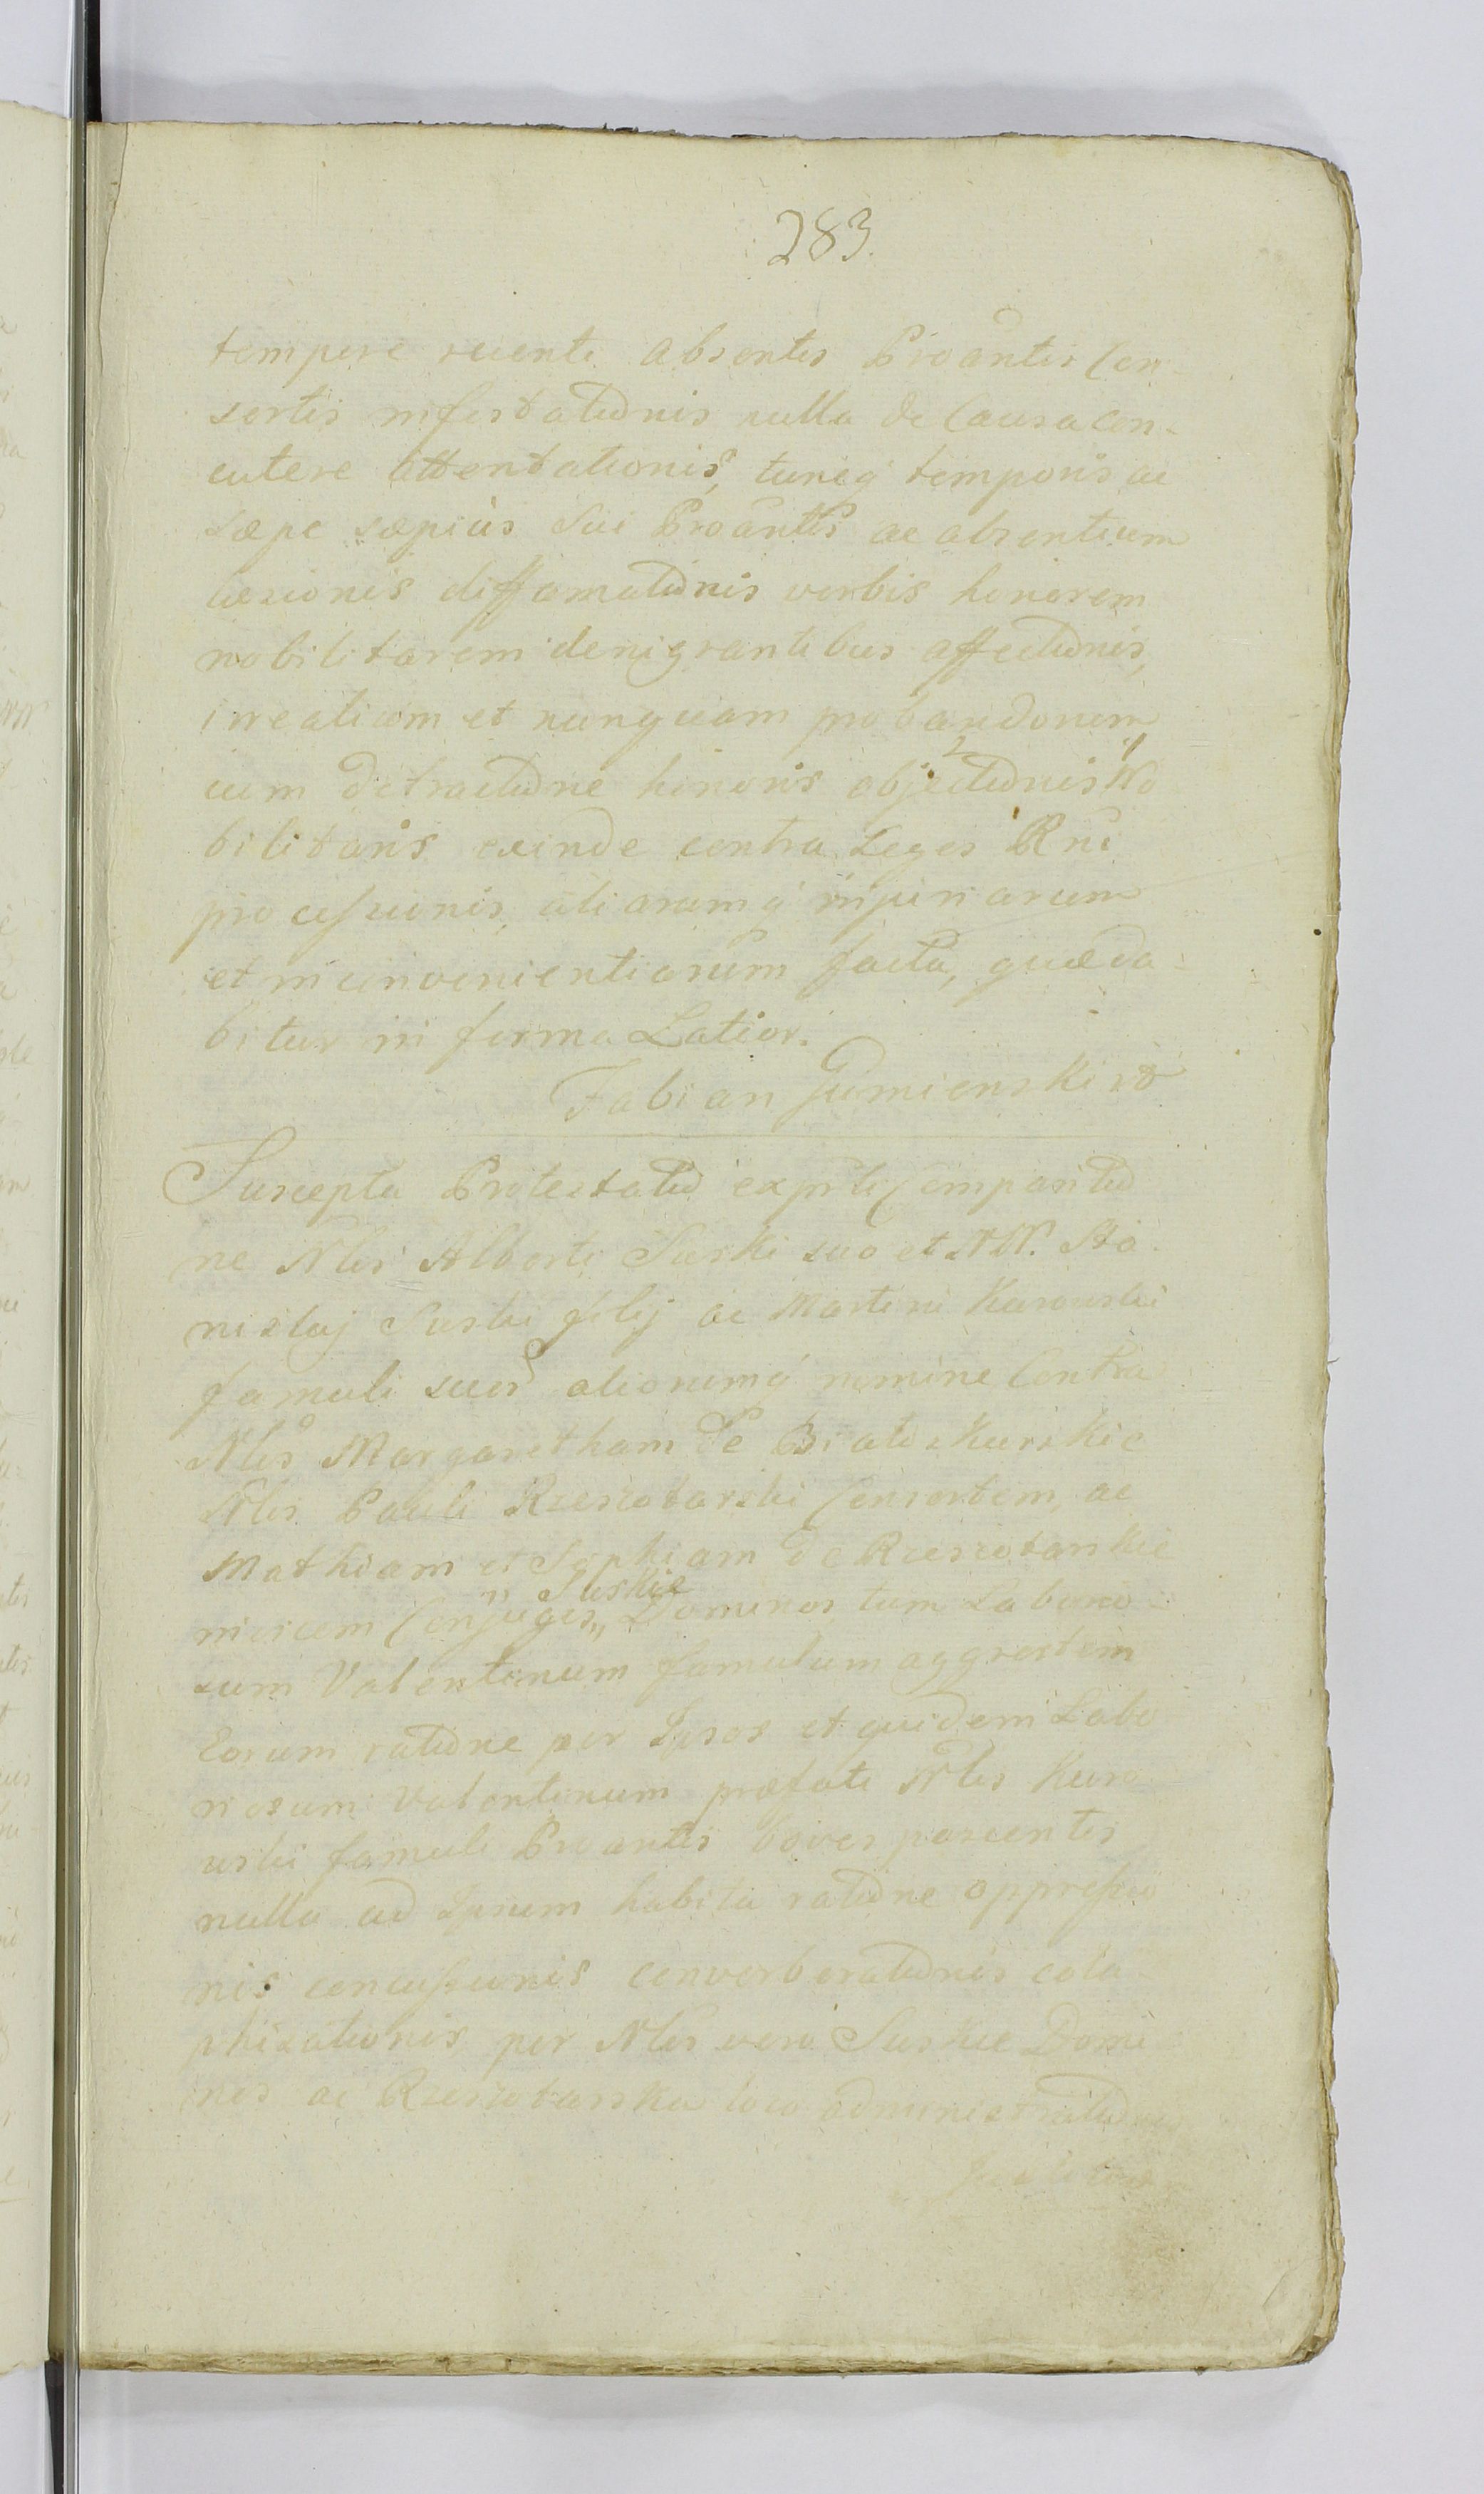 283.
tempore recenti absentis Proantis Con-
sortis infestationis nulla de Causa con-
cutere attentationis, tuncq temporis ac
sæpe sæpius sui Proantis ac absentium
læsionis diffamationis verbis honorem
nobilitarem denigrantibus affectionis,
irrealium et nunquam probandorum
cum detractione honoris objectionis No
bilitaris exinde contra Leges Rni
processionis, aliarumq injuriarum
et inconvenientiarum facta, quæ da-
bitur in forma Latiori.
Fabian Gumienski
Suscepta Protestatio ex prti Comparitio
ne Nlis Alberti Suski suo et NN. Sta
nislaj Suski filij ac Martini Kurowski
famuli suor aliorumq nomine Contra
Nles Margaretham de Białoskurskie
Nlis Pauli Rzeszotarski Consortem, ac
Mathiam et Sophiam de Rzeszotarskie
invicem Conjuges,, Suskie Dominos tum Laborio
sum Valentinum famulum aggrestem
Eorum ratione per Ipsos et quidem Labo
riosum Valentinum præfati Nlis Kuro
wski famuli Proantis boves pascentis
nulla ad Ipsum habita ratione oppressio
nis concussionis converberationis cola
phizationis per Nles vero Suskie Domi
nos ac Rzeszotarska loco administrationis